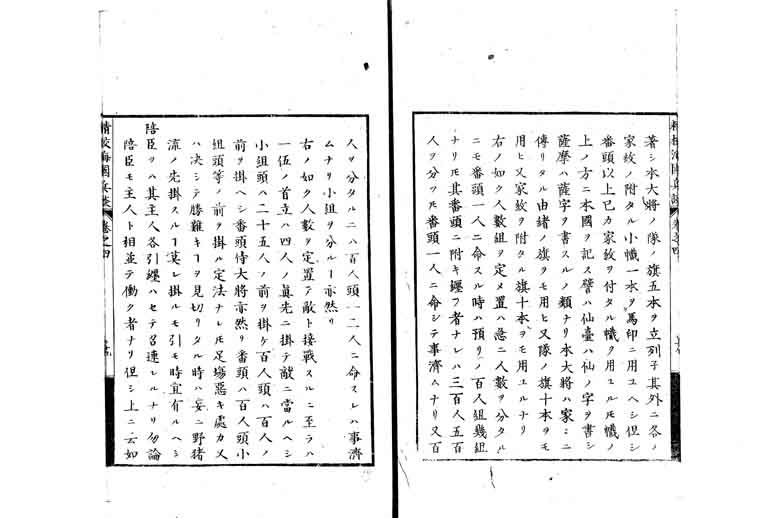 著シ本大將ノ隊ノ旗五本ヲ立列子其外ニ各ノ
家紋ノ附タル小幟一本ヲ馬印ニ用ユヘシ但シ
番頭以上己カ家紋ヲ付タル幟ヲ用ユルモ幟ノ
上ノ方ニ本國ヲ記ス譬ハ仙臺ハ仙ノ字ヲ書シ
薩摩ハ薩字ヲ書スルノ類ナリ本大將ハ家ニニ
傳リタル由緒ノ旗ヲモ用ヒ又隊ノ旗十本ヲモ
用ヒ又家紋ヲ附タル旗十本ヲモ用ユルナリ
右ノ如ク人數組ヲ定メ置ハ急ニ人數ヲ分タル
ニモ番頭一人ニ命スル時ハ預リノ百人組幾組
ナリモ其番頭ニ附キ纒フ者ナレハ三百人五百
人ヲ分ツモ番頭一人ニ命シテ事濟ムナリ又百
人ヲ分タルニハ百人頭一二人ニ命スレハ事濟
ムナリ小組ヲ分ルー亦然リ
右ノ如ク人數ヲ定置テ敵ト接戰スルニ至ラハ
一伍ノ首立ハ四人ノ眞先ニ掛テ敵ニ當ルヘシ
小組頭ハ二十五人ノ前ヲ掛ケ百人頭ハ百人ノ
前ヲ掛ヘシ番頭侍大將亦然リ番頭ハ百人頭小
組頭等ノ前ヲ掛ル定法ナレモ足場惡キ處カ又
ハ决シテ勝難キーヲ見切リタル時ハ妄ニ野猪
流ノ先掛スルー莫レ掛ルモ引モ時宜有ルヘシ
陪臣ヲハ其主人各引纒ハセテ召連レルナリ勿論
陪臣モ主人ト相並テ働ク者ナリ但シ上ニ云如
精校海國兵談 卷之四